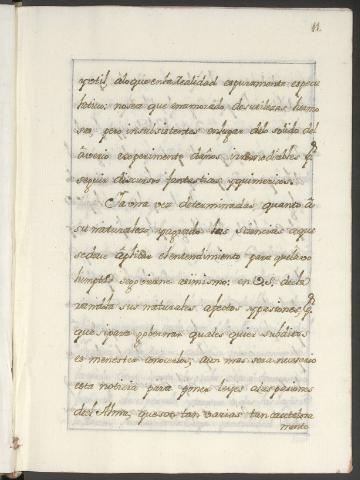 11.
y otil aloque enla realidad espuramente especu
lativo: no sea que enamorado de sutilezas hermo
sas, pero insubsistentes en lugar delo solido del
averio experimente daños irremediables pr.
seguir discursos fantasticos y quimericos.
Ia una vez determinadas quanto â
su naturaleza y agrado las sciencias aque
se deve aplicar el entendimiento para que la
se goviernen asimismo: en V.S. de la
sus naturales afectos y pasiones, pr.
que si para governar quales quier subditos
es menester conocerlos; aun mas sera necesario
esta noticia para poner leyes alas pasiones
del Alma, que son tan varias tan
mente